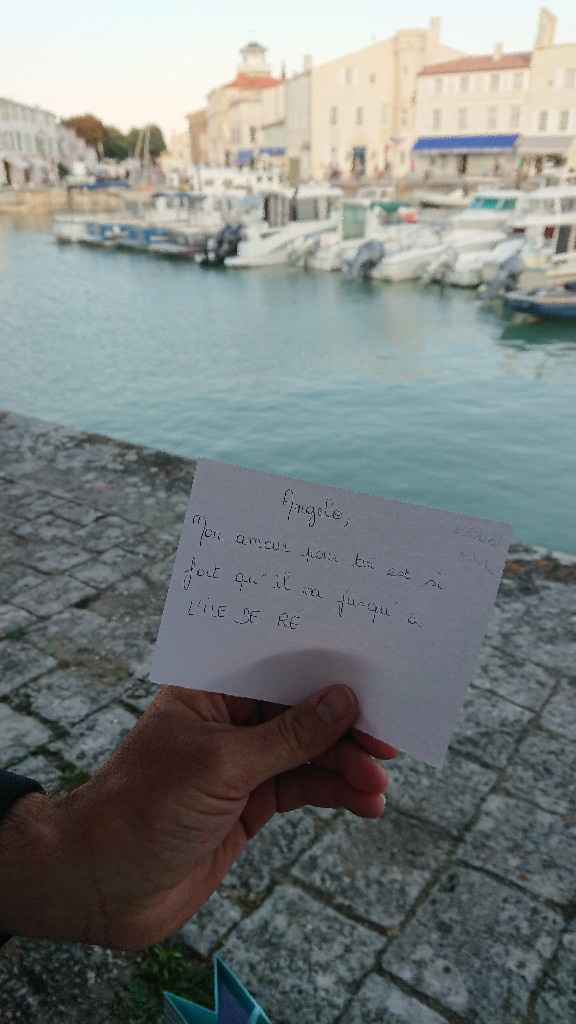 Angelo,
Mon amour pour toi est si
fort qu'il va jusqu'à
L'ÎLE DE RÉ